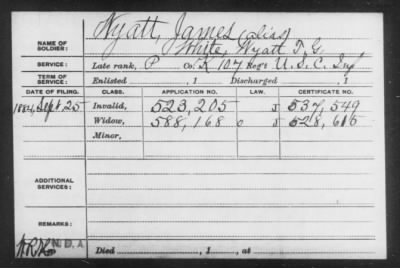 Wyatt, James (alias)
NAME OF SOLDIER: White, Wyatt T. G.
SERVICE: Late rank, P Co. K 107 Reg't U.S.C. Inf
TERM OF SERVICE: Enlisted , 1 Discharged , 1
DATE OF FILING. CLASS. APPLICATION NO. LAW. CERTIFICATE NO.
1884, Sept 25 Invalid, 523,205 537,549
Widow, 588,168
Minor,
ADDITIONAL SERVICES:
REMARKS:
N.D.A.
Died , 1 , at